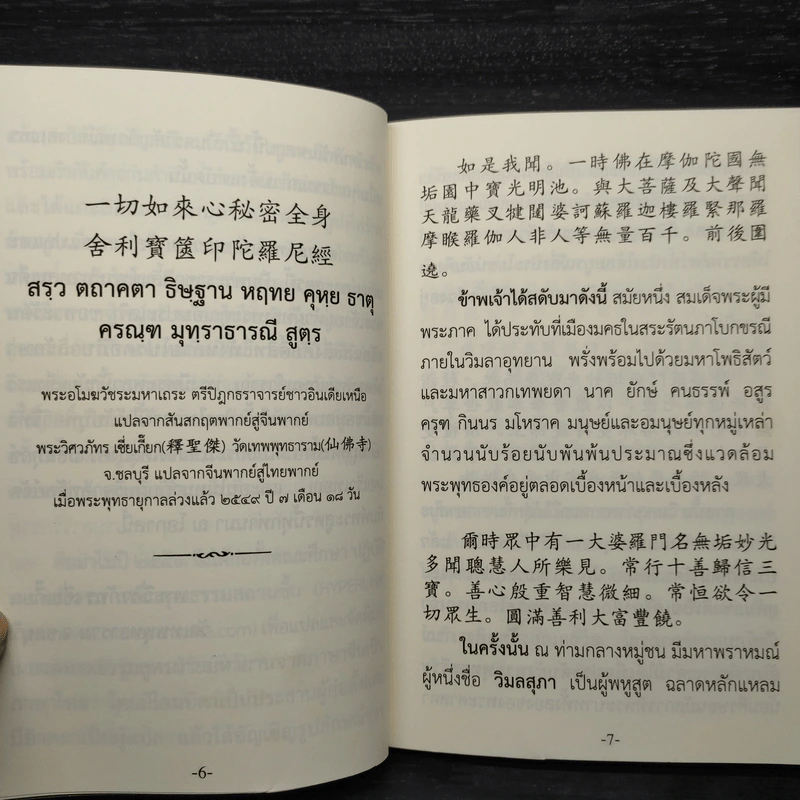 一切如來心秘密全身
舍利寶篋印陀羅尼經
สรฺว ตถาคตา ธิษฺฐาน หฤทย คุหฺย ธาตุ
ครณฺฑ มุทฺราธารณี สูตฺร
พระอโมฆวัชระมหาเถระ ตรีปิฎกธราจารย์ชาวอินเดียเหนือ
แปลจากสันสกฤตพากย์สู่จีนพากย์
พระวิศวภัทร เซี่ยเกี๊ยก(釋聖傑) วัดเทพพุทธาราม(仙佛寺)
จ.ชลบุรี แปลจากจีนพากย์สู่ไทยพากย์
เมื่อพระพุทธายุกาลล่วงแล้ว ๒๕๔๙ ปี ๗ เดือน ๑๘ วัน
-6-
如是我聞。一時佛在摩伽陀國無
垢園中寶光明池。與大菩薩及大聲聞
天龍藥叉犍闥婆訶蘇羅迦樓羅緊那羅
摩睺羅伽人非人等無量百千。前後圍
遶。
ข้าพเจ้าได้สดับมาดังนี้ สมัยหนึ่ง สมเด็จพระผู้มี
พระภาค ได้ประทับที่เมืองมคธในสระรัตนภาโบกขรณี
ภายในวิมลาอุทยาน พรั่งพร้อมไปด้วยมหาโพธิสัตว์
และมหาสาวกเทพยดา นาค ยักษ์ คนธรรพ์ อสูร
ครุฑ กินนร มโหราค มนุษย์และอมนุษย์ทุกหมู่เหล่า
จำนวนนับร้อยนับพันพ้นประมาณซึ่งแวดล้อม
พระพุทธองค์อยู่ตลอดเบื้องหน้าและเบื้องหลัง
爾時眾中有一大婆羅門名無垢妙光
多聞聰慧人所樂見。常行十善歸信三
寶。善心殷重智慧微細。常恒欲令一
切眾生。圓滿善利大富豐饒。
ในครั้งนั้น ณ ท่ามกลางหมู่ชน มีมหาพราหมณ์
ผู้หนึ่งชื่อ วิมลสุภา เป็นผู้พหูสูต ฉลาดหลักแหลม
-7-